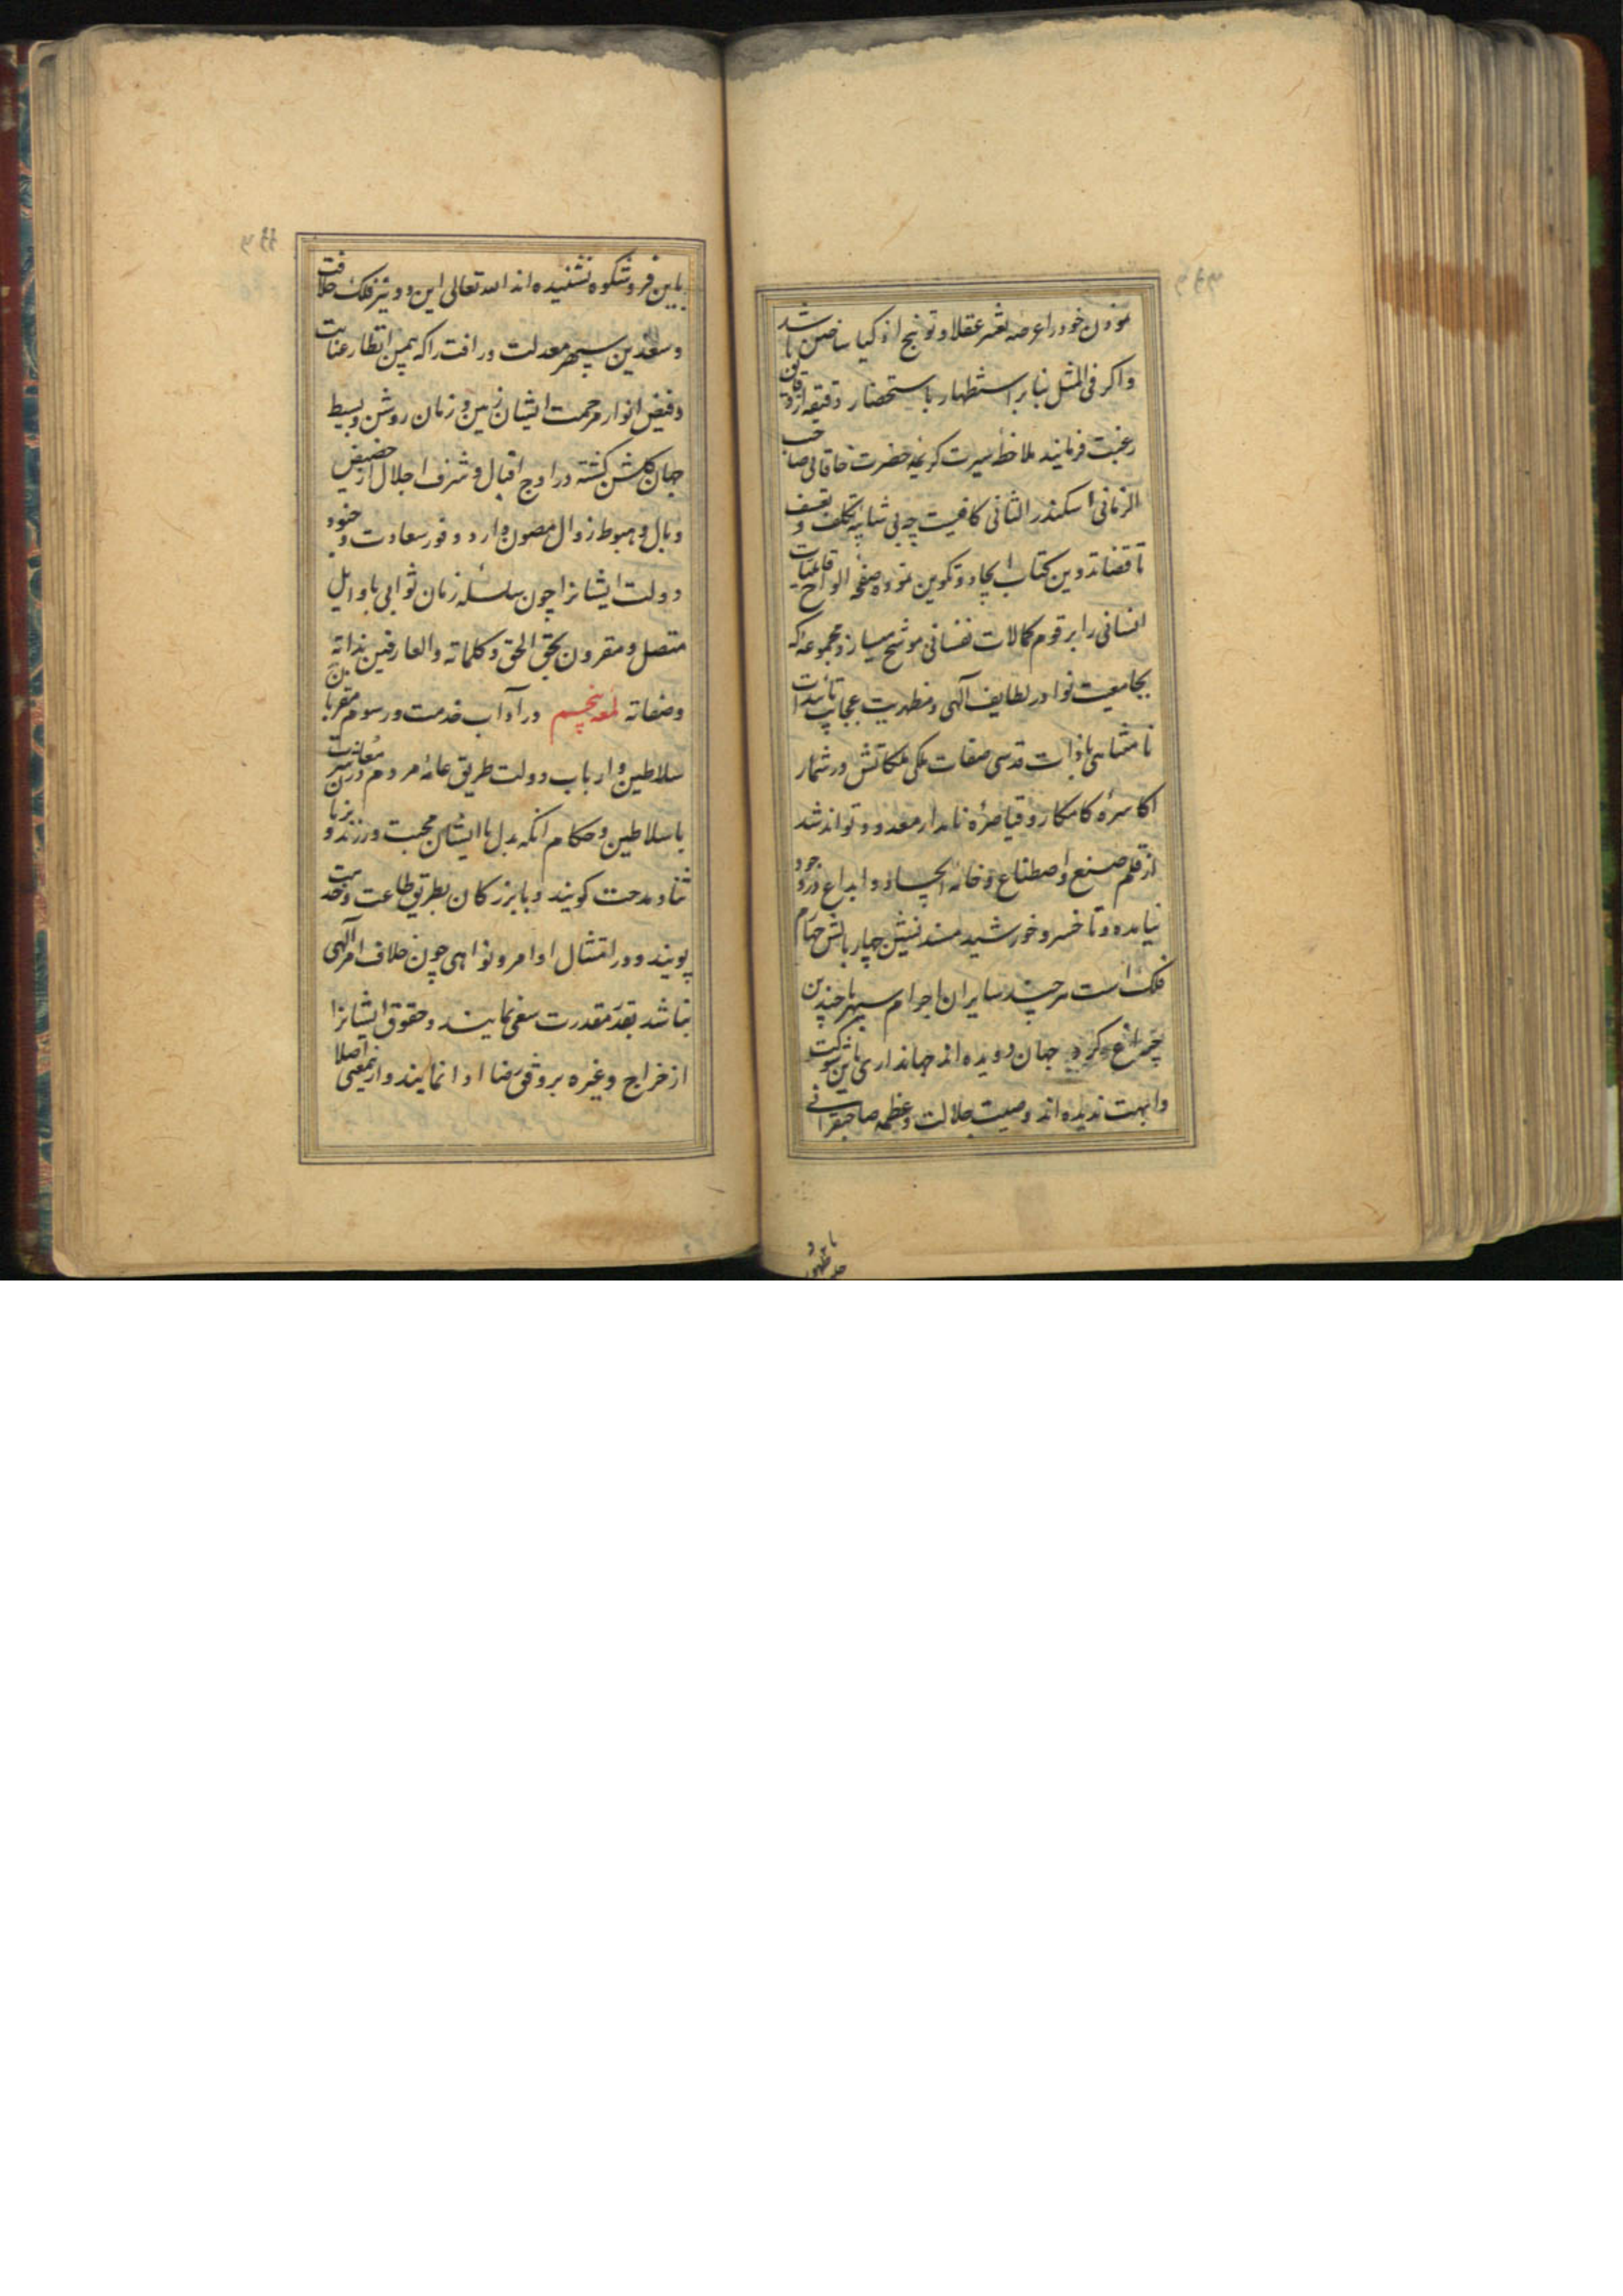 نمودن خود را عرضه تعییر عقلا و توبیخ اذکیا ساختن باشد
و اکر فی المثل بنابر استظهار باستحضار دقیقه از دقایق
رغبت فرمایند ملاحظه سیرت کریمه حضرت خاقانی صاحب
الزمانی اسکندر الثانی کافیست چه بی شایبه تکلف و تعسف
تا قضا تدوین کتاب ایجاد و تکوین نموده صفحه الواح قابلیات
انسانی را برقوم کمالات نفسانی موشح میسازد مجموعه که
بجامعیت نوادر لطایف آلهی و مظهریت عجایب تأییدات
نامتناهی با ذات قدسی صفات ملکی ملکاتش در شمار
اکاسره کامکار و قیاصره نامدار معدود تواند شد
از قلم صنع و اصطناع و خامه ایجاد و ابداع در وجود
نیامده و تا خسرو خورشید مسند نشین چهار بالش چهارم
فلک است هر چند سایر ان اجرام سپهر با چندین
چراغ کرد جهان دویده اند جهانداری باین شوکت
و ابهت ندیده اند وصیت جلالت و عظمه صاحبقرانی
باین فر و شکوه نشنیده اند الله تعالی این دو نیر فلک خلافت
و سعدین سپهر معدلت و رافت را که بیمن انظار عنایت
و فیض انوار مرحمت ایشان زمین و زمان روشن و بسیط
جهان کلشن کشته در اوج اقبال و شرف اجلال از حضیض
وبال و هبوط زوال مصون دارد و وفور سعادت و جنود
دولت ایشانرا چون سلسله زمان ثوانی باوایل
متصل و مقرون بحق الحق و کلماته والعارفین بذاته
وصفاته لمعه پنجم در آداب خدمت و رسوم مقربان
سلاطین و ارباب دولت طریق عامه مردم در معاشرت
با سلاطین و حکام انکه بدل با ایشان محبت ورزند و بزبان
ثنا و مدحت کویند و بابرز کان بطریق طاعت و خدمت
پویند و در امتثال اوامر و نواهی چون خلاف امر آلهی
نباشد بقدر مقدرت سعی نمایند و حقوق ایشانرا
از خراج و غیره بر وفق رضا ادا نمایند و ازین معنی اصلا